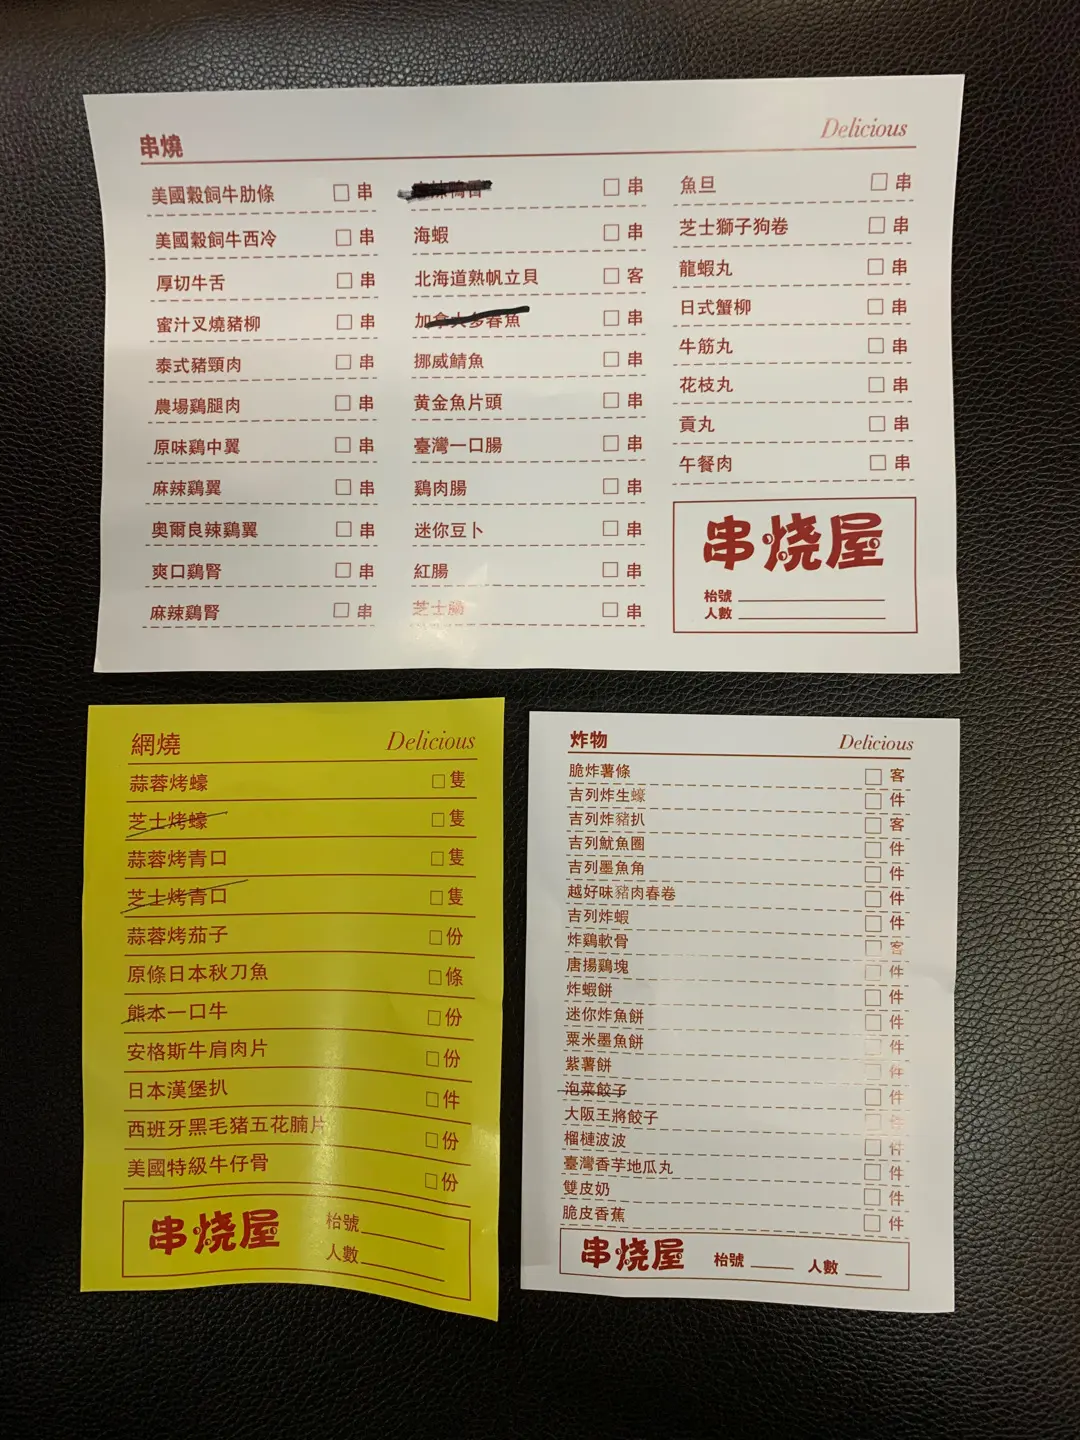 串燒
Delicious
美國穀飼牛肋條 □ 串
美國穀飼牛西冷 □ 串
厚切牛舌 □ 串
蜜汁叉燒豬柳 □ 串
泰式豬頸肉 □ 串
農場鷄腿肉 □ 串
原味鷄中翼 □ 串
麻辣鷄翼 □ 串
奧爾良辣鷄翼 □ 串
爽口鷄腎 □ 串
麻辣鷄腎 □ 串
□ 串
海蝦 □ 串
北海道熟帆立貝 □ 客
加拿大多春魚 □ 串
挪威鯖魚 □ 串
黄金魚片頭 □ 串
臺灣一口腸 □ 串
鷄肉腸 □ 串
迷你豆卜 □ 串
紅腸 □ 串
芝士腸 □ 串
魚旦 □ 串
芝士獅子狗卷 □ 串
龍蝦丸 □ 串
日式蟹柳 □ 串
牛筋丸 □ 串
花枝丸 □ 串
貢丸 □ 串
午餐肉 □ 串
串烧屋
枱號
人數
網燒
Delicious
蒜蓉烤蠔 □隻
芝士烤蠔 □隻
蒜蓉烤青口 □隻
芝士烤青口 □隻
蒜蓉烤茄子 □份
原條日本秋刀魚 □條
熊本一口牛 □份
安格斯牛肩肉片 □份
日本漢堡扒 □件
西班牙黑毛猪五花腩片 □份
美國特級牛仔骨 □份
串烧屋
枱號
人數
炸物
Delicious
脆炸薯條 □ 客
吉列炸生蠔 □ 件
吉列炸豬扒 □ 客
吉列魷魚圈 □ 件
吉列墨魚角 □ 件
越好味豬肉春卷 □ 件
吉列炸蝦 □ 件
炸鷄軟骨 □ 客
唐揚鷄塊 □ 件
炸蝦餅 □ 件
迷你炸魚餅 □ 件
粟米墨魚餅 □ 件
紫薯餅 □ 件
泡菜餃子 □ 件
大阪王將餃子 □ 件
榴槤波波 □ 件
臺灣香芋地瓜丸 □ 件
雙皮奶 □ 件
脆皮香蕉 □ 件
串烧屋
枱號
人數